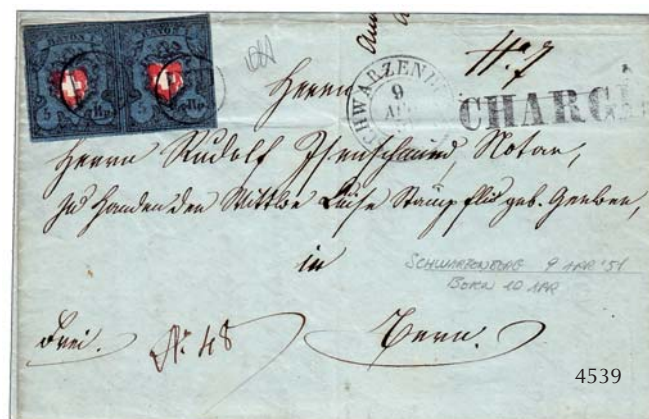 RAYON I. RAYON I.
5 Rp. 5 Rp.
No 7
Herrn
9
CHARGÉ
Herrn Rudolf Isenschmid, Notar,
zu Handen der Wittwe Luise Stämpfli geb. Gerber,
in
SCHWARZENBERG 9 APR '51
BERN 10 APR
Frei. No 48 Bern.
4539